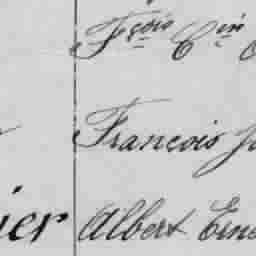 Fçois Cin
Francois J
ier Albert Erne